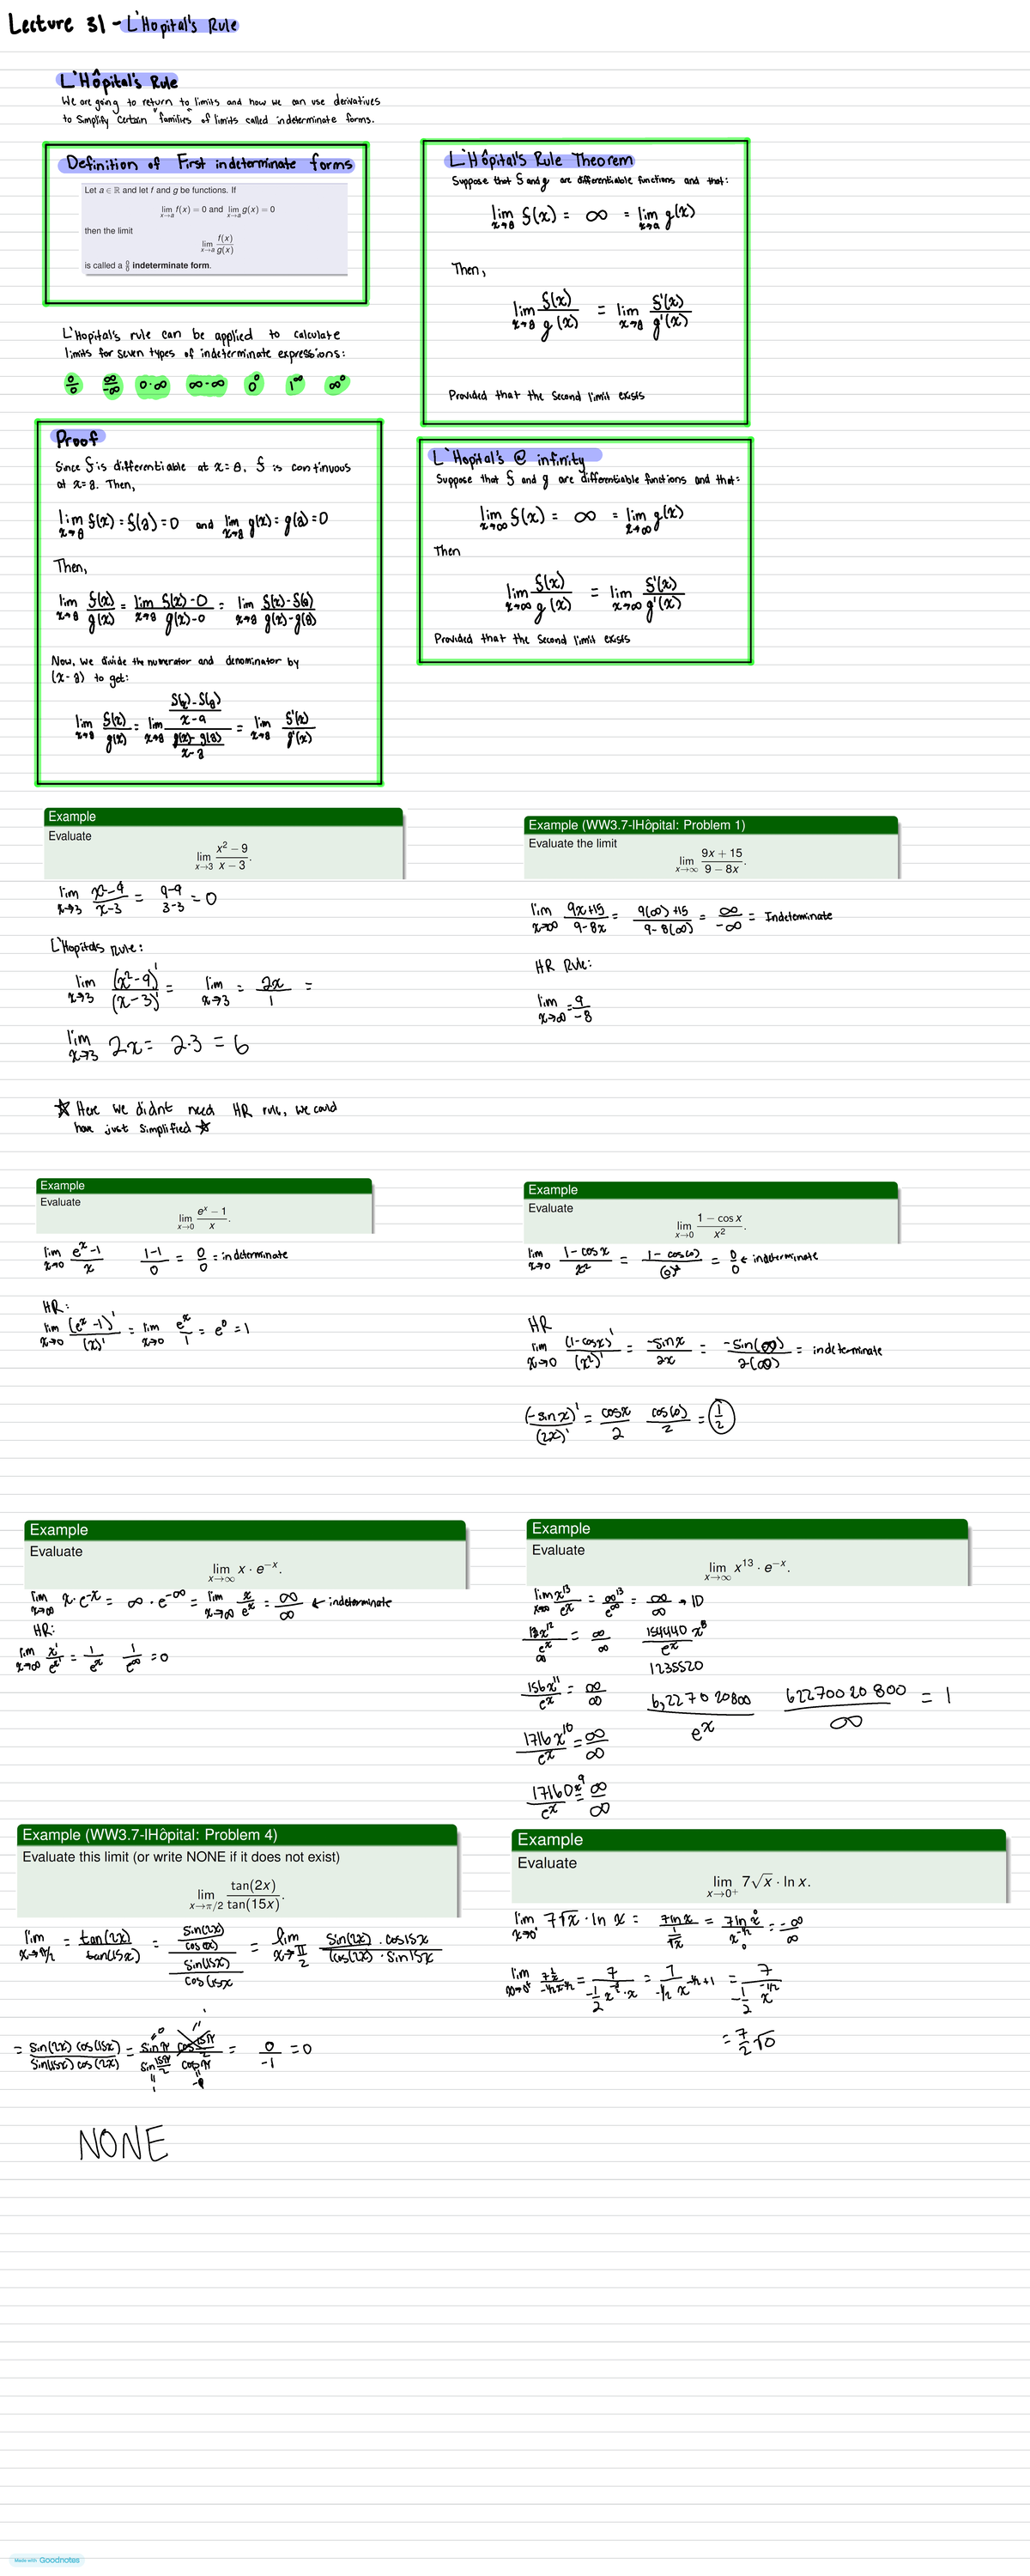 Lecture 31 - L'Hopital's Rule
L'Hôpital's Rule
We are going to return to limits and how we can use derivatives
to simplify certain "families" of limits called indeterminate forms.
Definition of First indeterminate forms
Let a ∈ ℝ and let f and g be functions. If
lim x→a f(x) = 0 and lim x→a g(x) = 0
then the limit
lim x→a f(x)/g(x)
is called a 0/0 indeterminate form.
L'Hopital's rule can be applied to calculate
limits for seven types of indeterminate expressions:
0/0 ∞/-∞ 0·∞ ∞-∞ 0^0 1^∞ ∞^0
L'Hôpital's Rule Theorem
Suppose that f and g are differentiable functions and that:
lim x→a f(x) = ∞ = lim x→a g(x)
Then,
lim x→a f(x)/g(x) = lim x→a f'(x)/g'(x)
Provided that the second limit exists
Proof
Since f is differentiable at x=a, f is continuous
at x=a. Then,
lim x→a f(x) = f(a) = 0 and lim x→a g(x) = g(a) = 0
Then,
lim x→a f(x)/g(x) = lim x→a f(x)-0/g(x)-0 = lim x→a f(x)-f(a)/g(x)-g(a)
Now, we divide the numerator and denominator by
(x-a) to get:
lim x→a f(x)/g(x) = lim x→a (f(x)-f(a)/x-a)/(g(x)-g(a)/x-a) = lim x→a f'(x)/g'(x)
L'Hopital's @ infinity
Suppose that f and g are differentiable functions and that:
lim x→∞ f(x) = ∞ = lim x→∞ g(x)
Then
lim x→∞ f(x)/g(x) = lim x→∞ f'(x)/g'(x)
Provided that the second limit exists
Example
Evaluate
lim x→3 x²-9/x-3.
lim x→3 x²-9/x-3 = 9-9/3-3 = 0
L'Hopitals Rule:
lim x→3 (x²-9)'/(x-3)' = lim x→3 = 2x/1 =
lim x→3 2x = 2·3 = 6
☆ Here we didnt need HR rule, we could
have just simplified ☆
Example (WW3.7-lHôpital: Problem 1)
Evaluate the limit
lim x→∞ 9x+15/9-8x.
lim x→∞ 9x+15/9-8x = 9(∞)+15/9-8(∞) = ∞/-∞ = Indeterminate
HR Rule:
lim x→∞ = 9/-8
Example
Evaluate
lim x→0 e^x-1/x.
lim x→0 e^x-1/x 1-1/0 = 0/0 = indeterminate
HR:
lim x→0 (e^x-1)'/(x)' = lim x→0 e^x/1 = e^0 = 1
Example
Evaluate
lim x→0 1-cos x/x².
lim x→0 1-cos x/x² = 1-cos(0)/(0)² = 0/0 ← indeterminate
HR
lim x→0 (1-cosx)'/(x²)' = -sinx/2x = -sin(∞)/2(∞) = indeterminate
(-sinx)'/(2x)' = cosx/2 cos(0)/2 = 1/2
Example
Evaluate
lim x→∞ x·e^-x.
lim x→∞ x·e^-x = ∞·e^-∞ = lim x→∞ x/e^x = ∞/∞ ← indeterminate
HR:
lim x→∞ x'/e^x' = 1/e^x 1/e^∞ = 0
Example
Evaluate
lim x→∞ x^13·e^-x.
lim x→∞ x^13/e^x = ∞^13/e^∞ = ∞/∞ → ID
13x^12/e^x = ∞/∞ 154440x^8/e^x
∞
1235520
156x^11/e^x = ∞/∞ 6,227020800/e^x 622700 20 800/∞ = 1
1716x^10/e^x = ∞/∞
17160x^9/e^x = ∞/∞
Example (WW3.7-lHôpital: Problem 4)
Evaluate this limit (or write NONE if it does not exist)
lim x→π/2 tan(2x)/tan(15x).
lim x→π/2 = tan(2x)/tan(15x) = (sin(2x)/cos(2x))/(sin(15x)/cos15x) = lim x→π/2 sin(2x)·cos15x/cos(2x)·sin15x
= sin(2x) cos(15x)/sin(15x) cos(2x) = sin π cos 15π/2 / sin 15π/2 cos π = 0/-1 = 0
NONE
Example
Evaluate
lim x→0+ 7√x·ln x.
lim x→0+ 7√x·ln x = 7lnx/(1/√x) = 7lnx/x^-1/2 = -∞/∞
= 7/2 √0